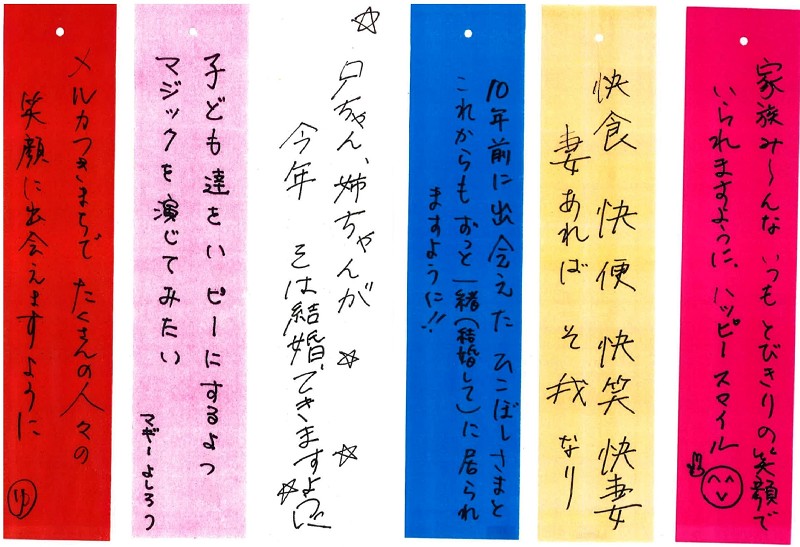 家族み〜んな いつもとびきりの笑顔で
いられますように、ハッピースマイル
快食 快便 快笑 快妻
妻あれば そ我なり
10年前に出会えたひこぼしさまと
これからもずっと一緒(結婚して)に居られ
ますように!!
兄ちゃん、姉ちゃんが
今年こそは結婚できますように
子ども達をハッピーにするよう
マジックを演じてみたい
マギーよしろう
メルカつきまちで たくさんの人々の
笑顔に出会えますように
ゆ